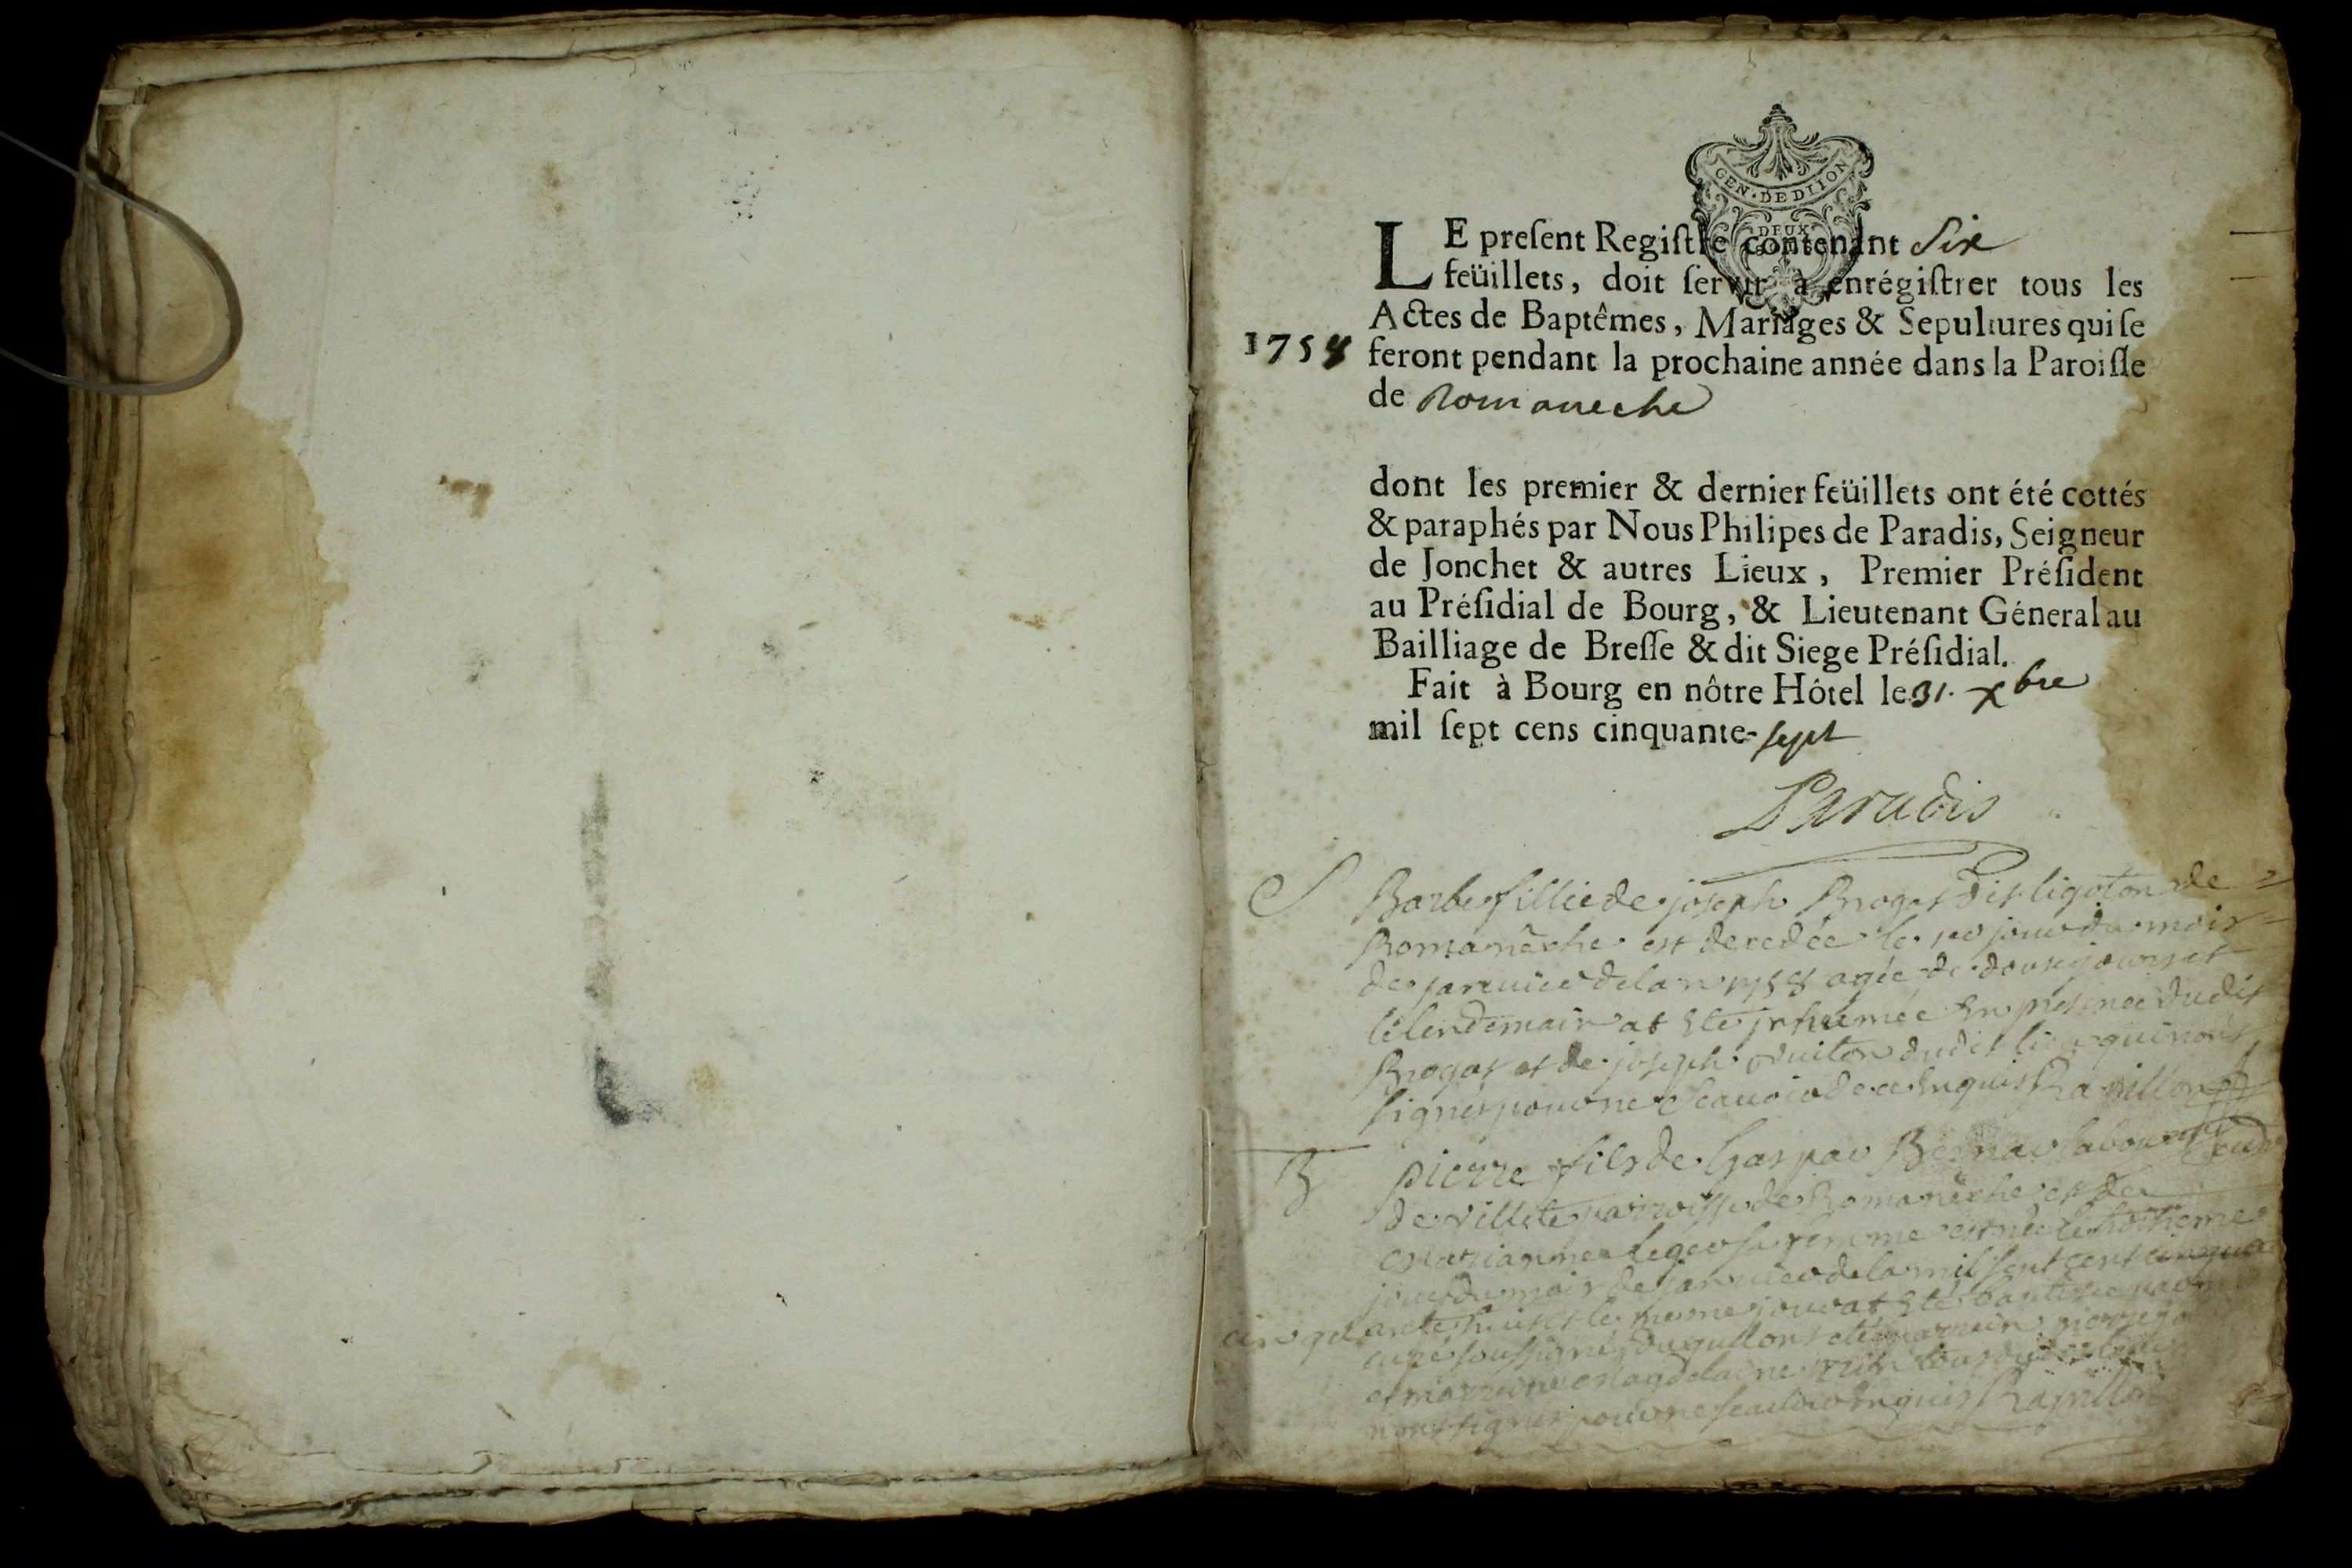 GEN · DE DIJON
DEUX
LE preſent Regiſtre contenant Six
feüillets, doit ſervir à enrégiſtrer tous les
Actes de Baptêmes, Mariages & Sepultures qui ſe
1758 feront pendant la prochaine année dans la Paroiſſe
de Romaneche
dont les premier & dernier feüillets ont été cottés
& paraphés par Nous Philipes de Paradis, Seigneur
de Jonchet & autres Lieux, Premier Préſident
au Préſidial de Bourg, & Lieutenant Géneral au
Bailliage de Breſſe & dit Siege Préſidial.
Fait à Bourg en nôtre Hôtel le 31. xbre
mil ſept cens cinquante-sept
Paradis
S Barbe fillie de joseph Brogat dit ligoton de
Romanêche est decedée le jour du mois
de janvier de lan 1758 agée de douse jours et
le lendemain at été jnhumée en presence dudit
Brogat et de joseph dudit lieu qui nont
signés pour ne sçavoir de ce enquis Ravillon
B pierre fils de Gaspar Bernar
de villete parroisse de Romanêche et de
marianne sa femme est née le
jour du mois de janvier de la mil sept cent cinqua
cinquante huit et le meme jour at été baptisé par
curé soussigné duquel ont été parrein pierre
et marreine magdelaine
nont signés pour ne scavoir enquis Ravillon